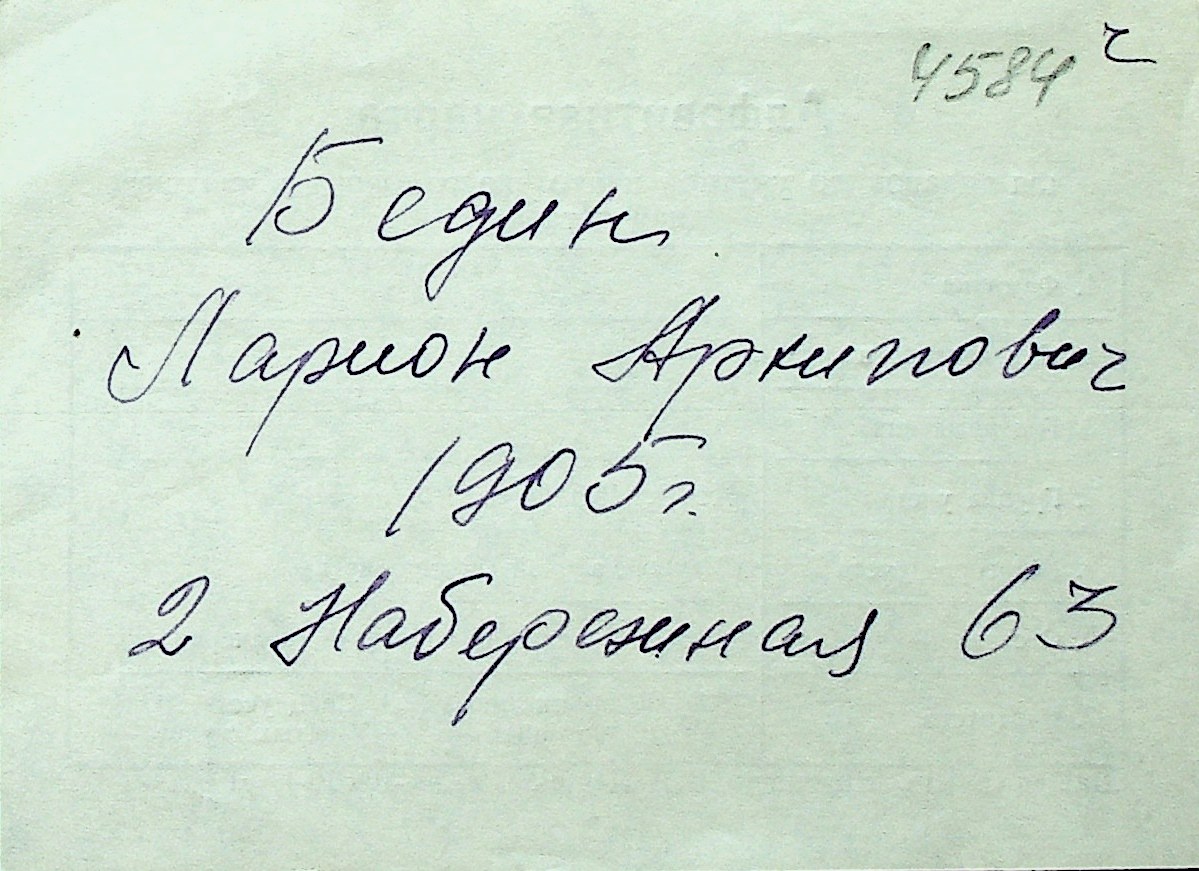 4584 ч
Бедин
Ларион Архипович
1905г.
2 Набережная 63